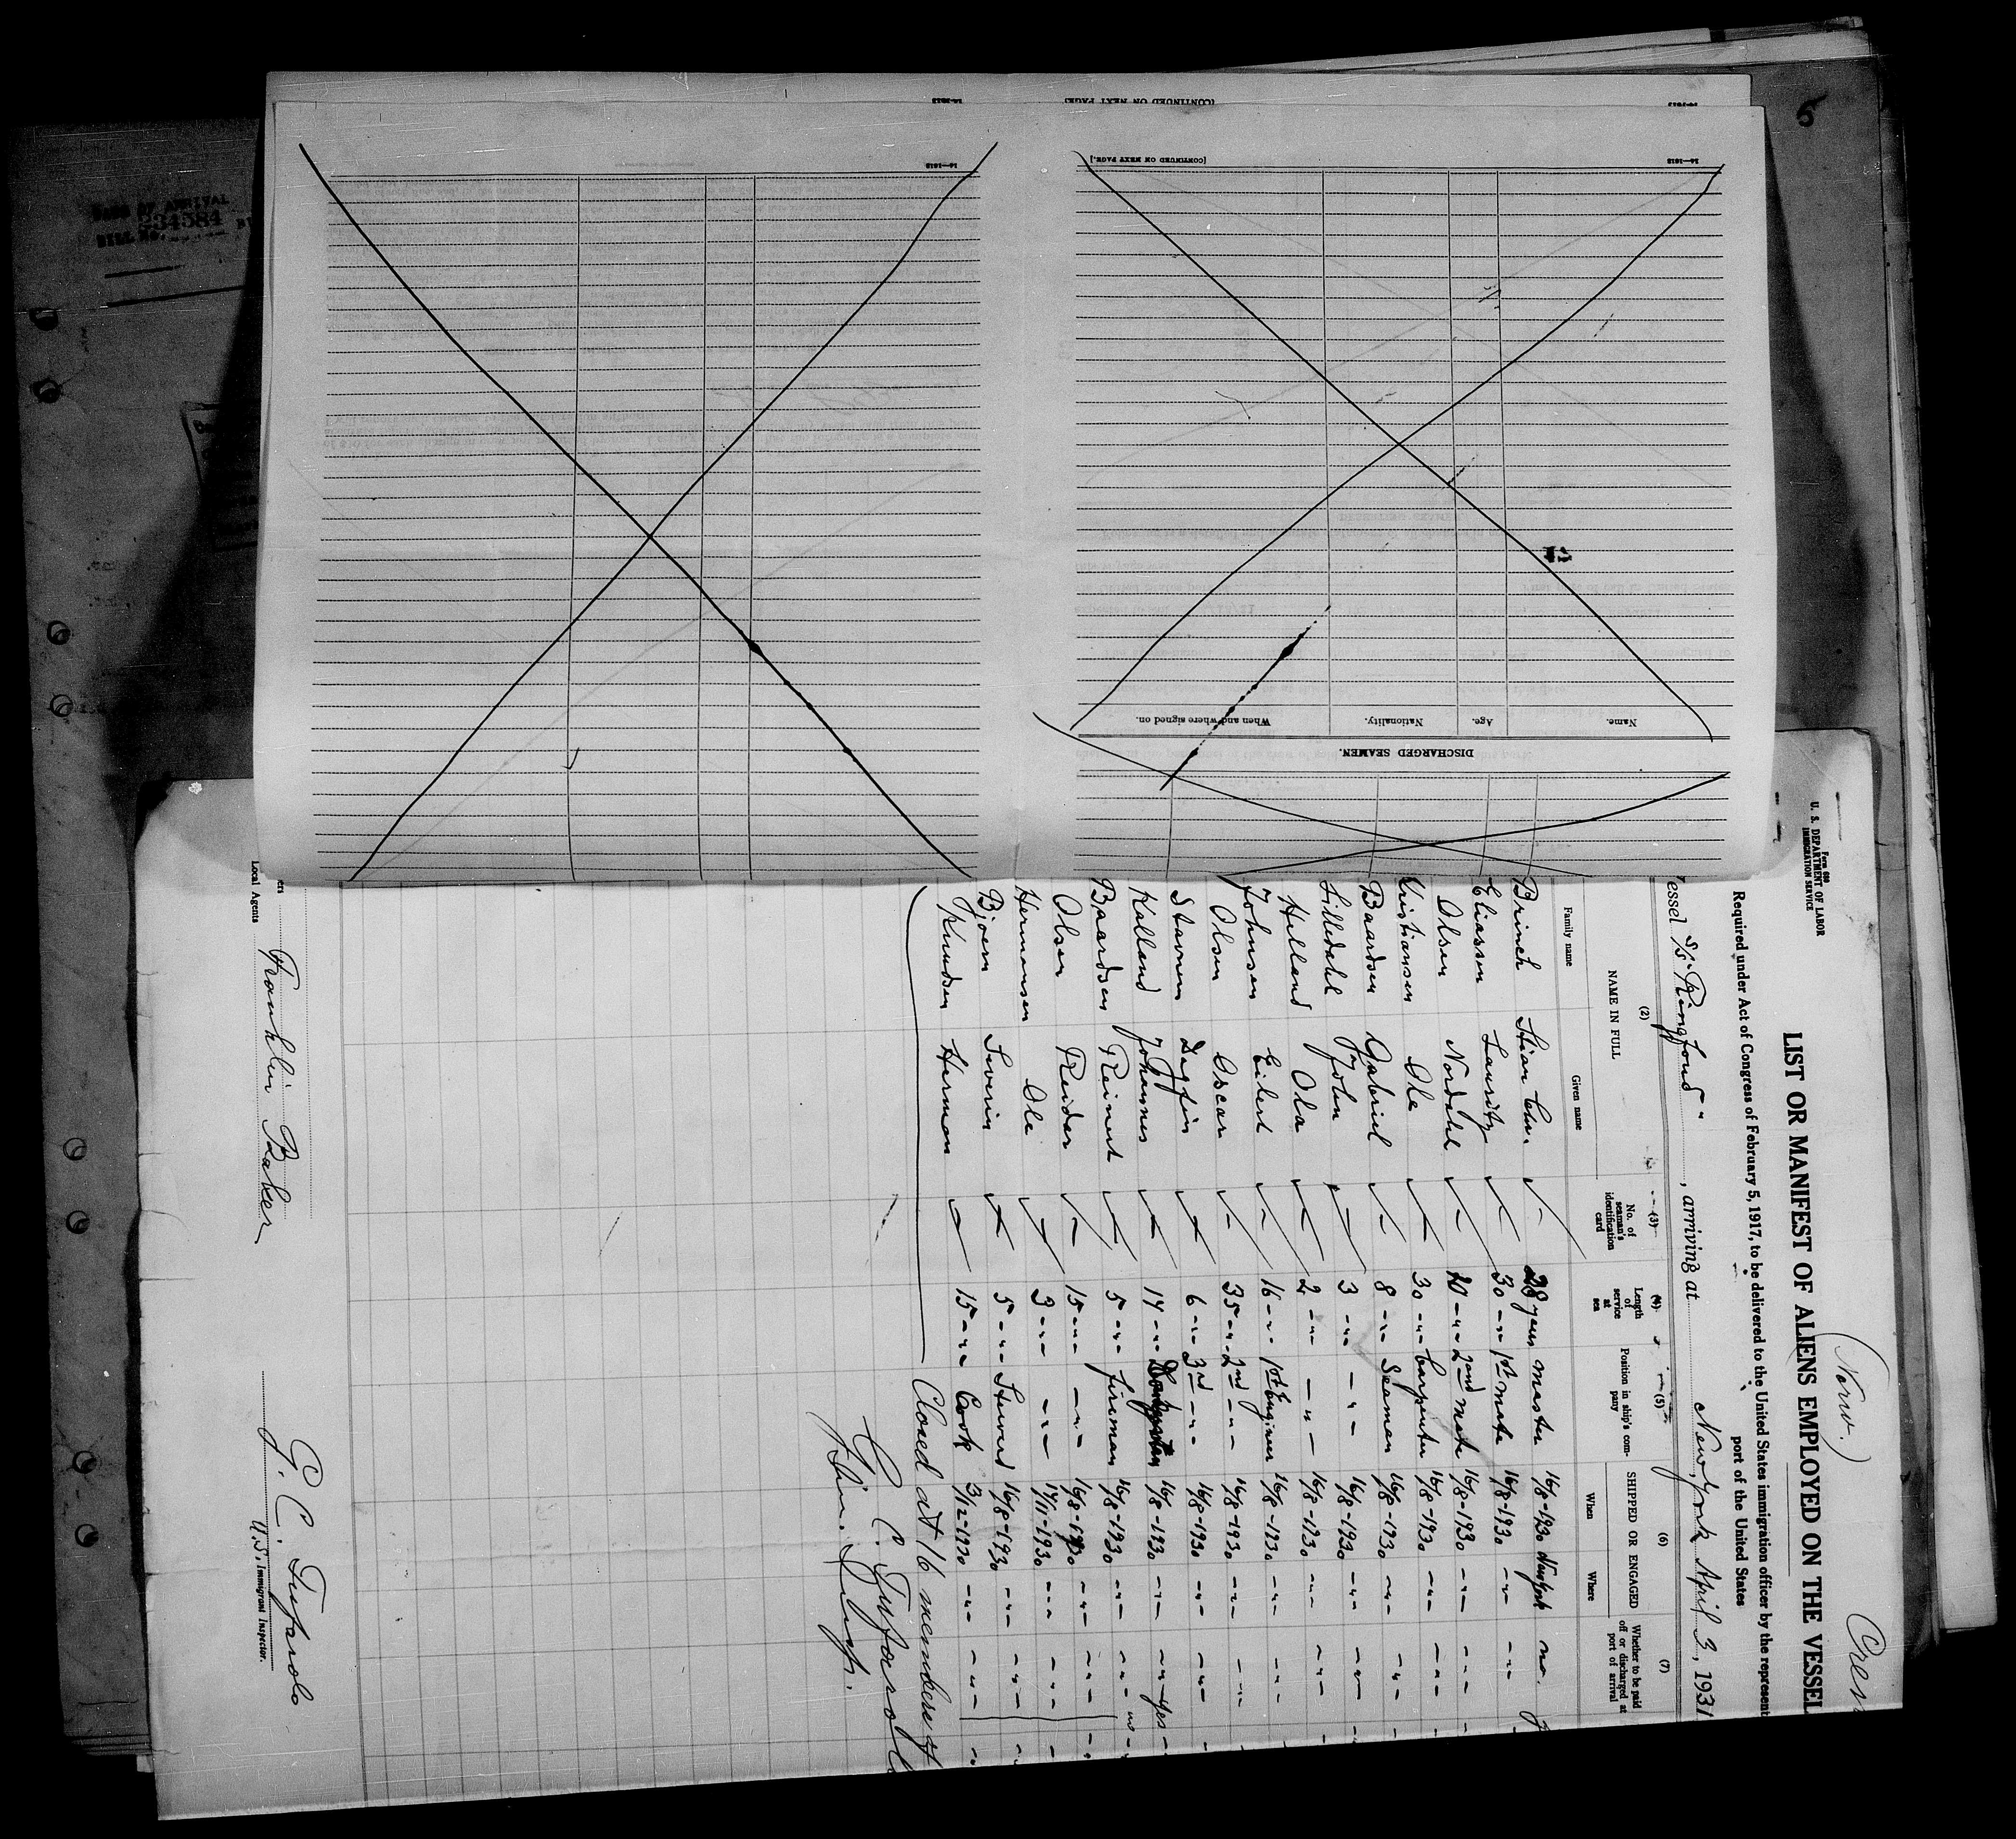 (Norw.)
Form 680
U. S. DEPARTMENT OF LABOR
IMMIGRATION SERVICE
LIST OR MANIFEST OF ALIENS EMPLOYED ON THE VESSEL
Required under Act of Congress of February 5, 1917, to be delivered to the United States immigration officer by the represent
port of the United States
essel S/S "Ringfond" , arriving at New York April 3, 1931
(2) (3) (4) (5) (6) (7)
NAME IN FULL
Family name Given name
No. of seaman's identification card
Length of service at sea
Position in ship's company
SHIPPED OR ENGAGED
When Where
Whether to be paid off or discharged at port of arrival
Brinch Stian Chr. 28 years master 16/8-1930 no.
Eliassen Lauritz 30 -"- 1st mate 16/8-1930 -"- -"-
Olsen Nordahl 20 -"- 2nd mate 16/8-1930 -"- -"-
Kristiansen Ole 30 -"- Carpenter 16/8-1930 -"- -"-
Baardsen Gabriel 8 -"- Seaman 16/8-1930 -"- -"-
Lilledahl John 3 -"- -"- 16/8-1930 -"- -"-
Helland Ola 2 -"- -"- 16/8-1930 -"- -"-
Johnsen Eilert 16 -"- 1st Engineer 16/8-1930 -"- -"-
Olsen Oscar 35 -"- 2nd -"- 16/8-1930 -"- -"-
Stavnem Dagfin 6 -"- 3rd -"- 16/8-1930 -"- -"-
Kalland Johannes 14 -"- 16/8-1930 -"- -"- yes
Baardsen Reinert 5 -"- fireman 16/8-1930 -"- -"- no
Olsen Reidar 15 -"- -"- 16/8-1930 -"- -"-
Hermansen Ole 3 -"- -"- 14/11-1930 -"- -"-
Bjoern Severin 5 -"- Steward 16/8-1930 -"- -"-
Knudsen Herman 15 -"- Cook 3/12-1930 -"- -"-
Closed at 16 members of
G. C. Tufarolo
Local Agents Franklin Baker
G. C. Tufarolo
U.S. Immigrant Inspector.
DISCHARGED SEAMEN.
Name. Age. Nationality. When and where signed on.
[CONTINUED ON NEXT PAGE.]
14—1613
14—1613
(CONTINUED ON NEXT PAGE)
BILL No. 234584
6